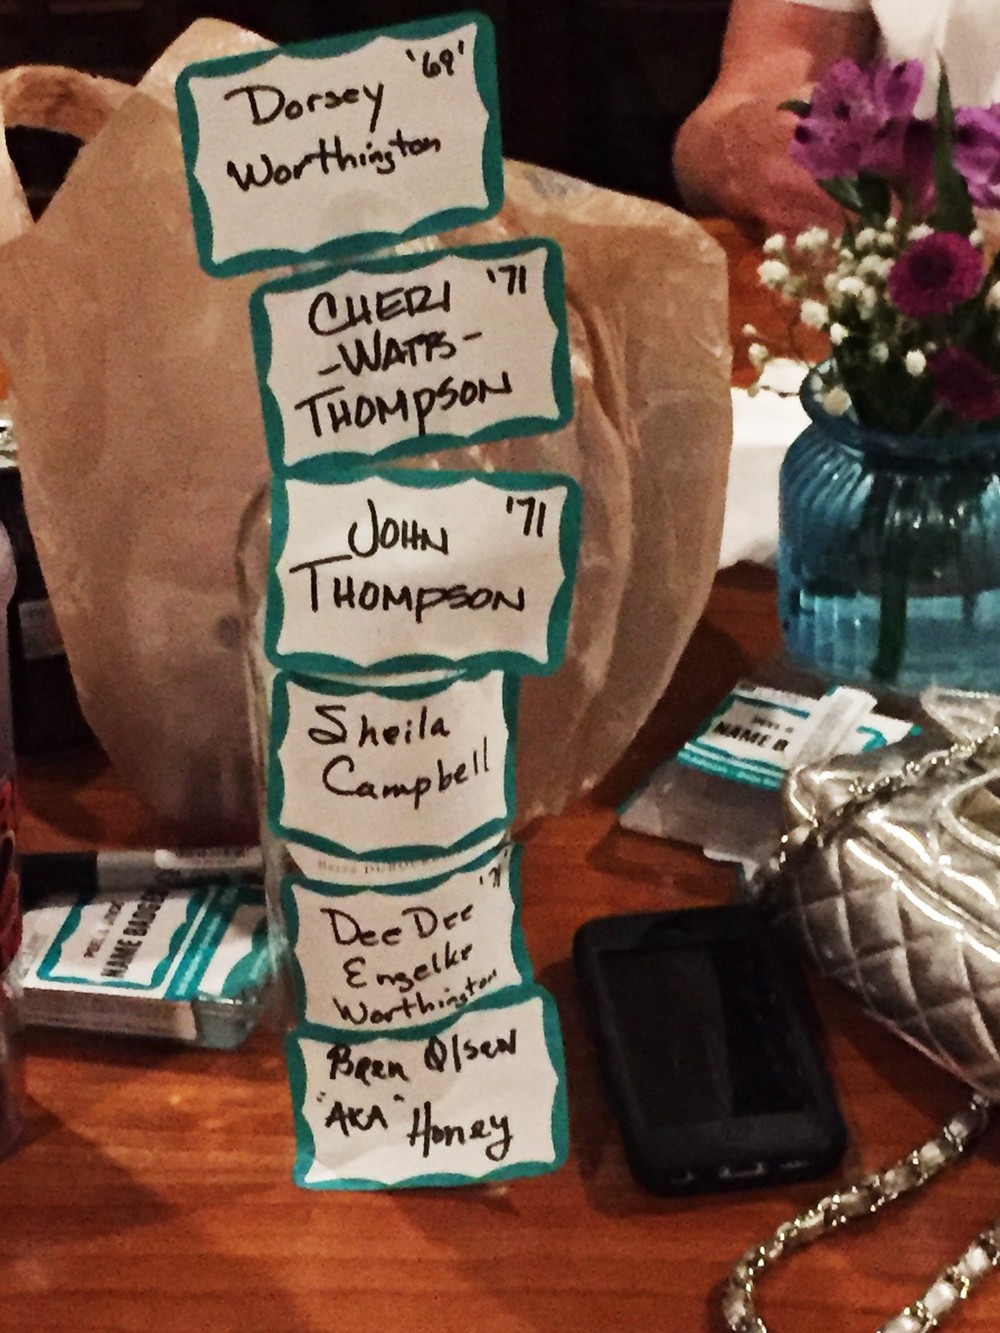 '69'
Dorsey
Worthington
CHERI '71
-WATTS-
THOMPSON
JOHN '71
THOMPSON
Sheila
Campbell
'71
DeeDee
Engelke
Worthington
Bren Olsen
"AKA" Honey
NAME BADGES
NAME B